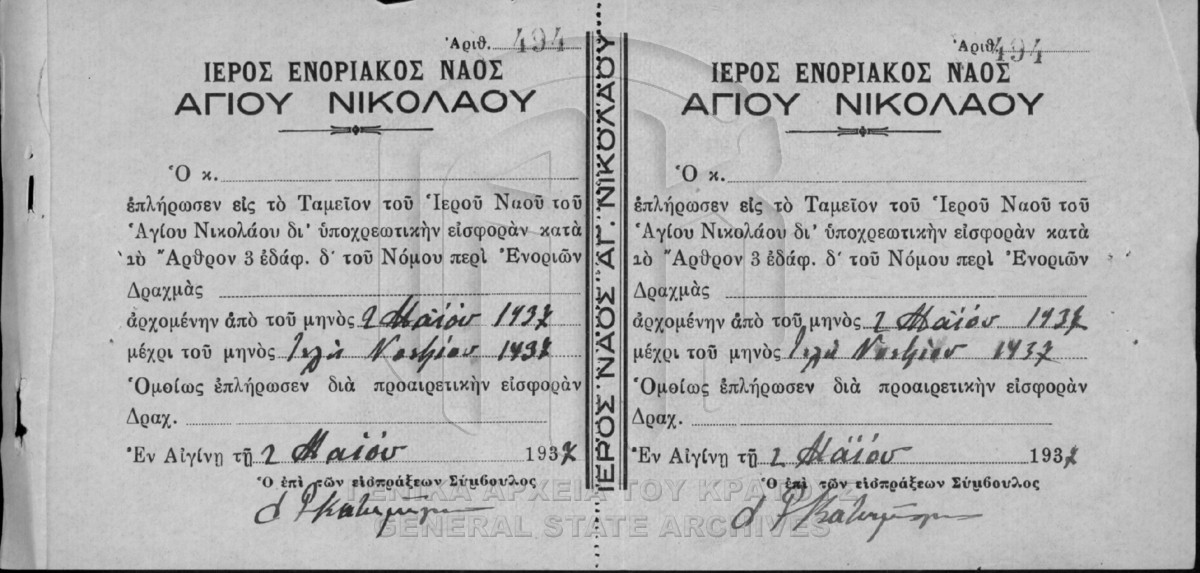 Ἀριθ. 494
ΙΕΡΟΣ ΕΝΟΡΙΑΚΟΣ ΝΑΟΣ
ΑΓΙΟΥ ΝΙΚΟΛΑΟΥ
Ὁ κ.
ἐπλήρωσεν εἰς τὸ Ταμεῖον τοῦ Ἱεροῦ Ναοῦ τοῦ
Ἁγίου Νικολάου δι' ὑποχρεωτικὴν εἰσφορὰν κατὰ
τὸ Ἄρθρον 3 ἐδάφ. δ' τοῦ Νόμου περὶ Ἐνοριῶν
Δραχμὰς
ἀρχομένην ἀπὸ τοῦ μηνὸς 2 Μαΐου 1937
μέχρι τοῦ μηνὸς 1937
Ὁμοίως ἐπλήρωσεν διὰ προαιρετικὴν εἰσφορὰν
Δραχ.
Ἐν Αἰγίνῃ τῇ 2 Μαΐου 1937
Ὁ ἐπὶ τῶν εἰσπράξεων Σύμβουλος
ΙΕΡΟΣ ΝΑΟΣ "ΑΓ. ΝΙΚΟΛΑΟΥ"
Ἀριθ. 494
ΙΕΡΟΣ ΕΝΟΡΙΑΚΟΣ ΝΑΟΣ
ΑΓΙΟΥ ΝΙΚΟΛΑΟΥ
Ὁ κ.
ἐπλήρωσεν εἰς τὸ Ταμεῖον τοῦ Ἱεροῦ Ναοῦ τοῦ
Ἁγίου Νικολάου δι' ὑποχρεωτικὴν εἰσφορὰν κατὰ
τὸ Ἄρθρον 3 ἐδάφ. δ' τοῦ Νόμου περὶ Ἐνοριῶν
Δραχμὰς
ἀρχομένην ἀπὸ τοῦ μηνὸς 2 Μαΐου 1937
μέχρι τοῦ μηνὸς 1937
Ὁμοίως ἐπλήρωσεν διὰ προαιρετικὴν εἰσφορὰν
Δραχ.
Ἐν Αἰγίνῃ τῇ 2 Μαΐου 1937
Ὁ ἐπὶ τῶν εἰσπράξεων Σύμβουλος
ΓΕΝΙΚΑ ΑΡΧΕΙΑ ΤΟΥ ΚΡΑΤΟΥΣ
GENERAL STATE ARCHIVES